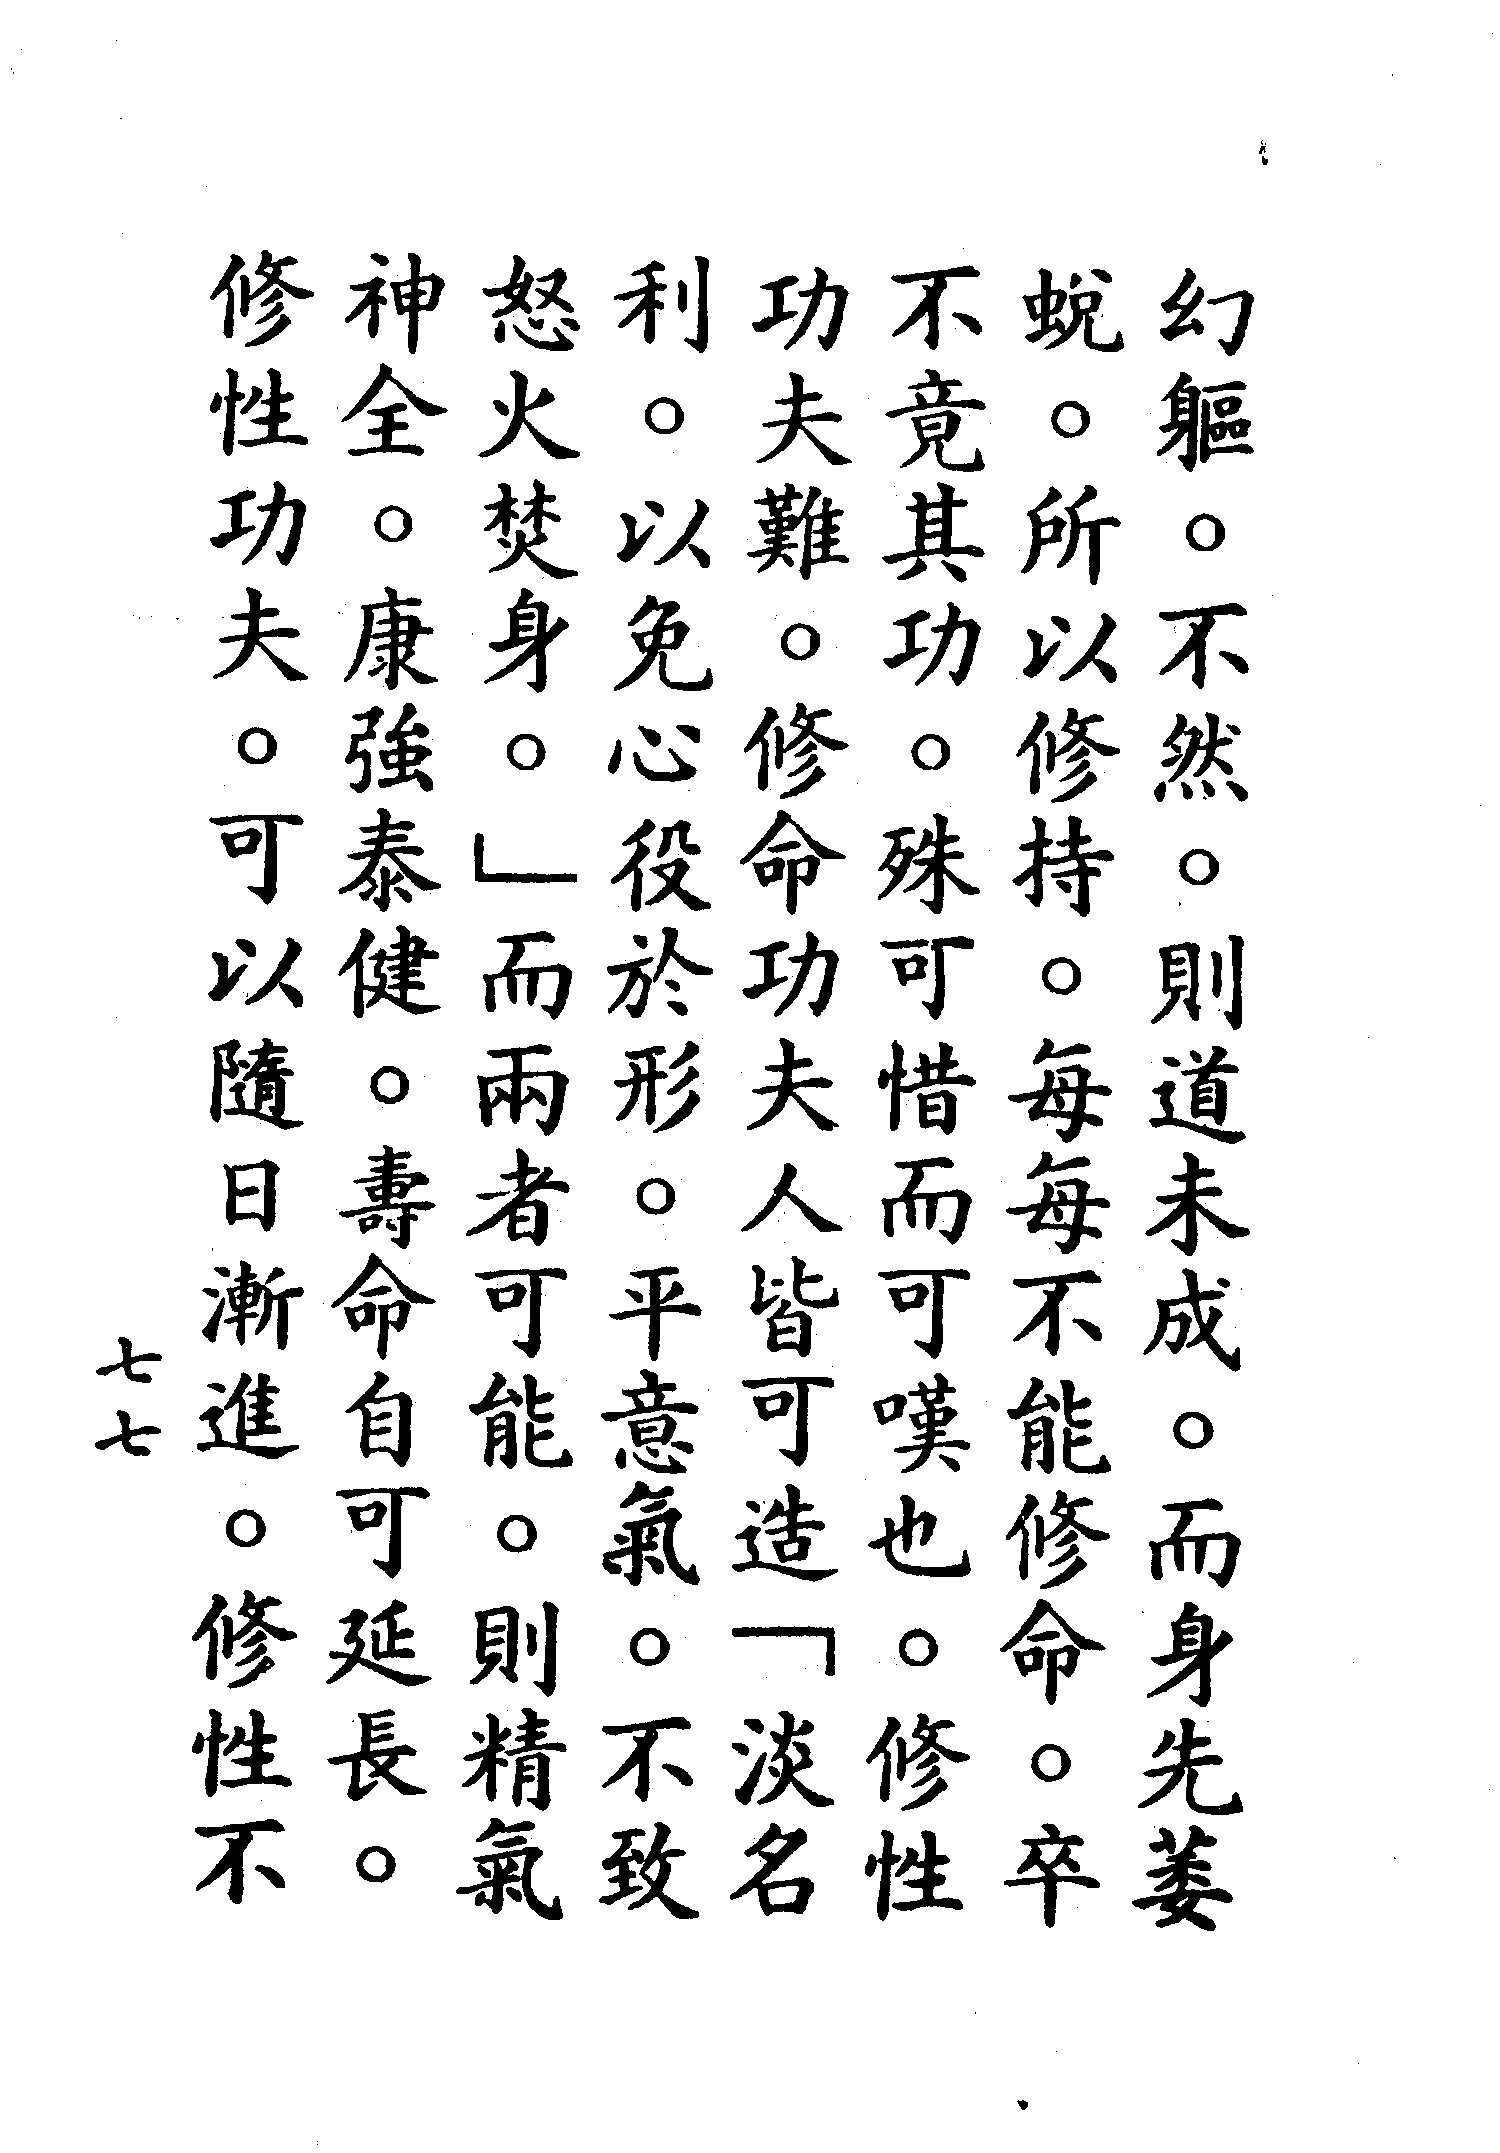 幻軀。不然。則道未成。而身先萎
蛻。所以修持。每每不能修命。卒
不竟其功。殊可惜而可嘆也。修性
功夫難。修命功夫人皆可造「淡名
利。以免心役於形。平意氣。不致
怒火焚身。」而兩者可能。則精氣
神全。康強泰健。壽命自可延長。
修性功夫。可以隨日漸進。修性不
七七